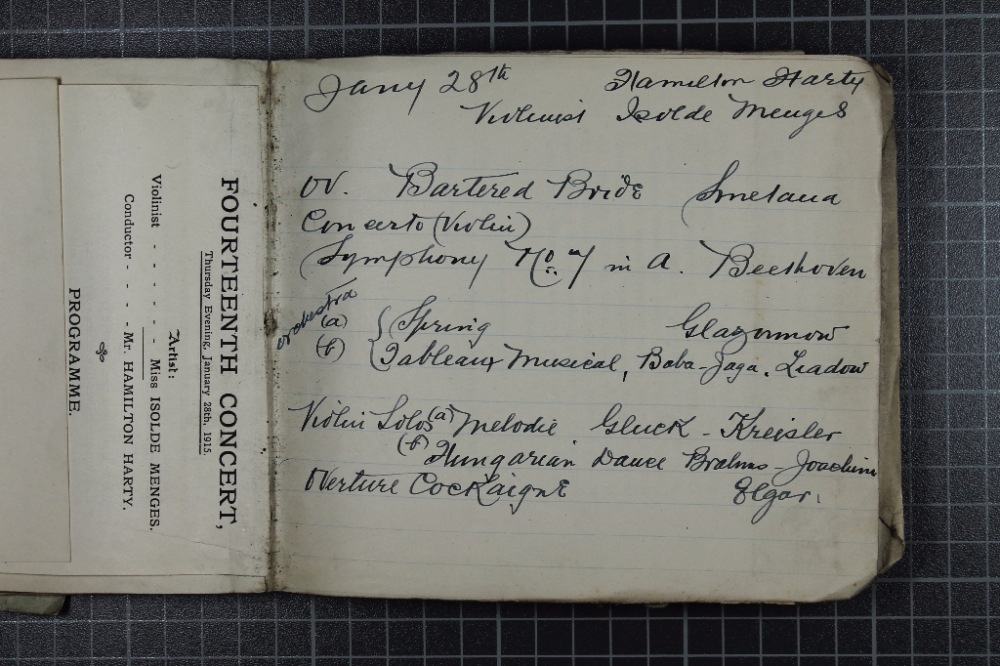 FOURTEENTH CONCERT,
Thursday Evening, January 28th, 1915.
Artist:
Violinist - - - - - Miss ISOLDE MENGES.
Conductor - - - - Mr. HAMILTON HARTY.
PROGRAMME.
Jany 28th Hamilton Harty
Violinist Isolde Menges
OV. Bartered Bride Smetana
Concerto (Violin)
Symphony No. 7 in A. Beethoven
orchestra
(a) Spring Glazounow
(b) Tableaux Musical, Baba-Jaga. Liadow
Violin Solos (a) Melodie Gluck - Kreisler
(b) Hungarian Dance Brahms - Joachim
Overture Cockaigne Elgar.